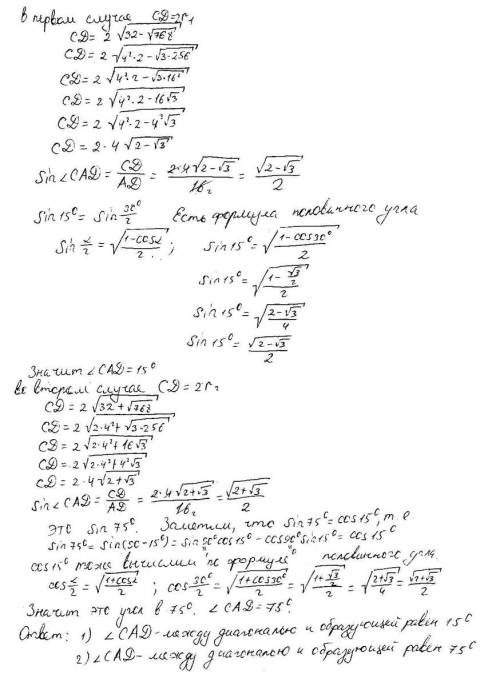 в первом случае CD=2r₁
CD= 2 √(32-√768)
CD= 2 √(4²·2-√(3·256))
CD= 2 √(4²·2-√(3·16²))
CD= 2 √(4²·2-16√3)
CD= 2 √(4²·2-4²√3)
CD= 2·4 √(2-√3)
Sin∠CAD= CD/AD = 2·4√(2-√3)/16₂ = √(2-√3)/2
Sin15°= Sin 30°/2 Есть формула половинного угла
Sin α/2 = √((1-cosα)/2); Sin15°= √((1-cos30°)/2)
Sin15°= √((1-√3/2)/2)
Sin15°= √((2-√3)/4)
Sin15°= √(2-√3)/2
Значит ∠CAD=15°
во втором случае CD=2r₂
CD= 2 √(32+√768)
CD= 2 √(2·4²+√(3·256))
CD= 2 √(2·4²+16√3)
CD= 2 √(2·4²+4²√3)
CD= 2·4 √(2+√3)
Sin∠CAD= CD/AD = 2·4√(2+√3)/16₂ = √(2+√3)/2
Это Sin75°. Заметим, что Sin75°=cos15°, т.е.
Sin75°= Sin(90-15°)=Sin90°cos15°-cos90°Sin15°= cos15°
cos15° тоже вычислим по формуле половинного угла.
cos α/2 = √((1+cosα)/2); cos 30°/2 = √((1+cos30°)/2) = √((1+√3/2)/2) = √((2+√3)/4) = √(2+√3)/2
Значит это угол в 75°. ∠CAD=75°.
Ответ: 1) ∠CAD-между диагональю и образующей равен 15°
2) ∠CAD- между диагональю и образующей равен 75°